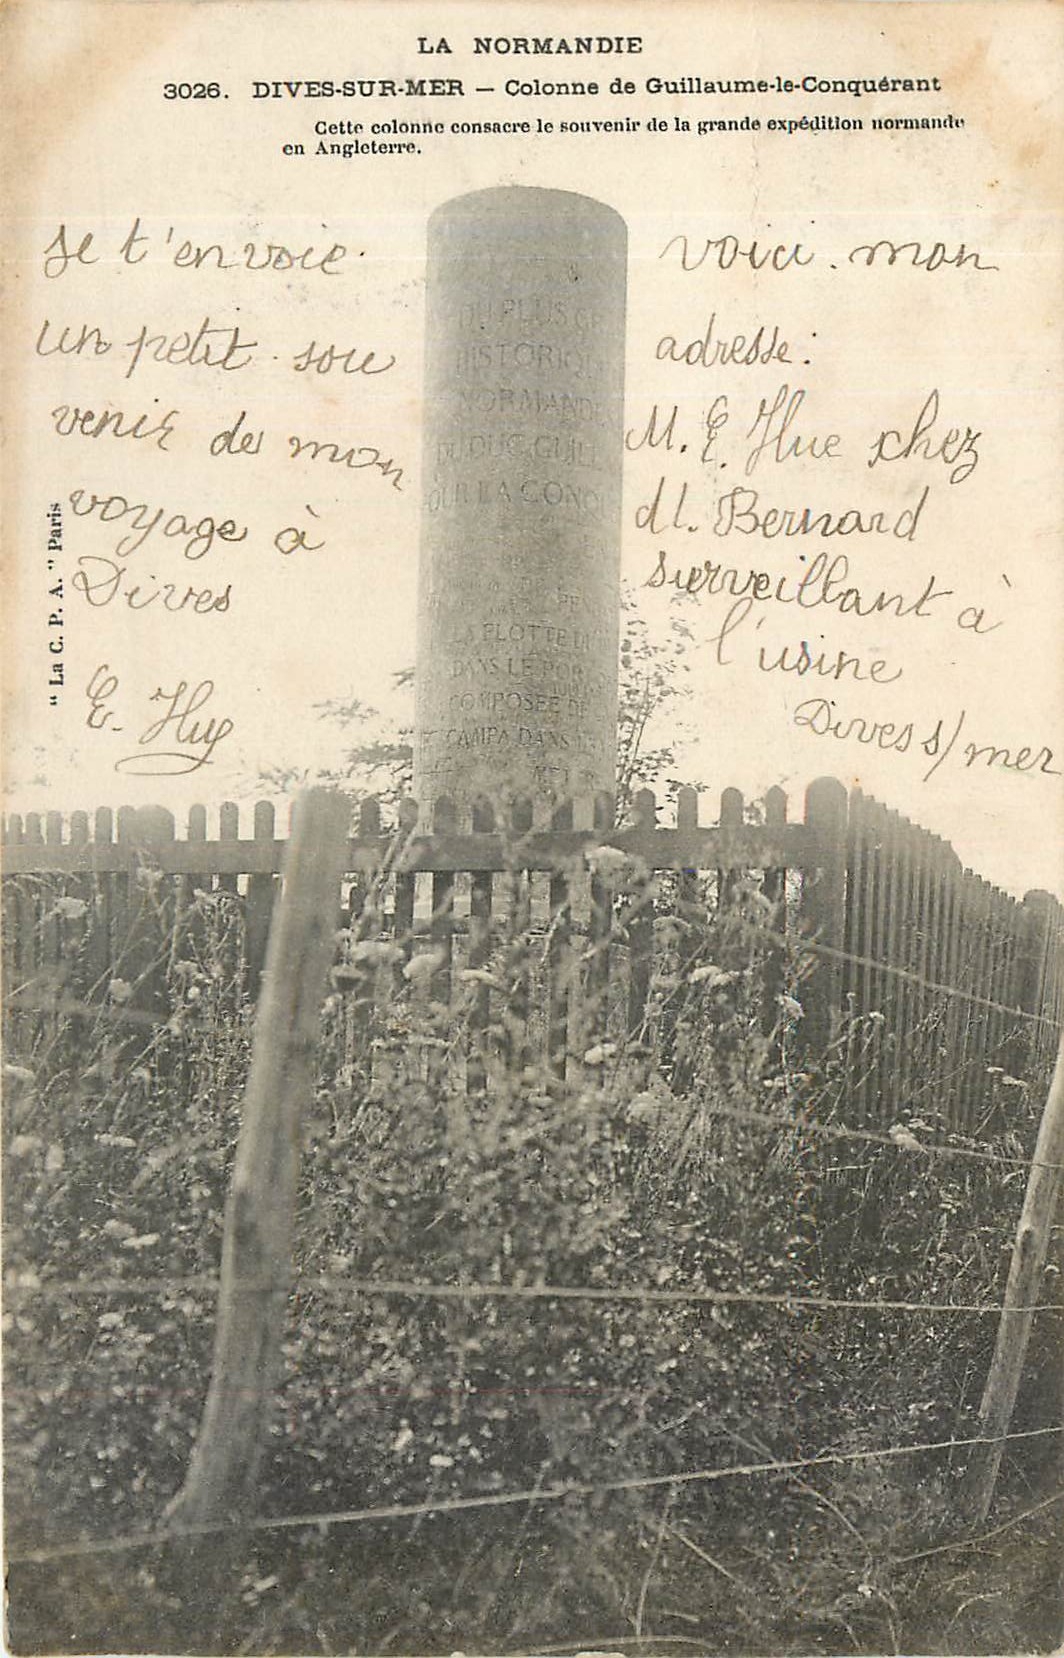 LA NORMANDIE
3026. DIVES-SUR-MER — Colonne de Guillaume-le-Conquérant
Cette colonne consacre le souvenir de la grande expédition normande
en Angleterre.
Je t'envoie
un petit sou
venir de mon
voyage à
Dives
E. Hue
voici mon
adresse:
M. E. Hue chez
M. Bernard
surveillant à
l'usine
Dives s/mer
"La C. P. A." Paris
DU PLUS GR
HISTORIQUE
NORMAND
DU DUC GUILL
OUR LA CONQ
LA FLOTTE
DANS LE POR
COMPOSEE DE
CAMPA DANS